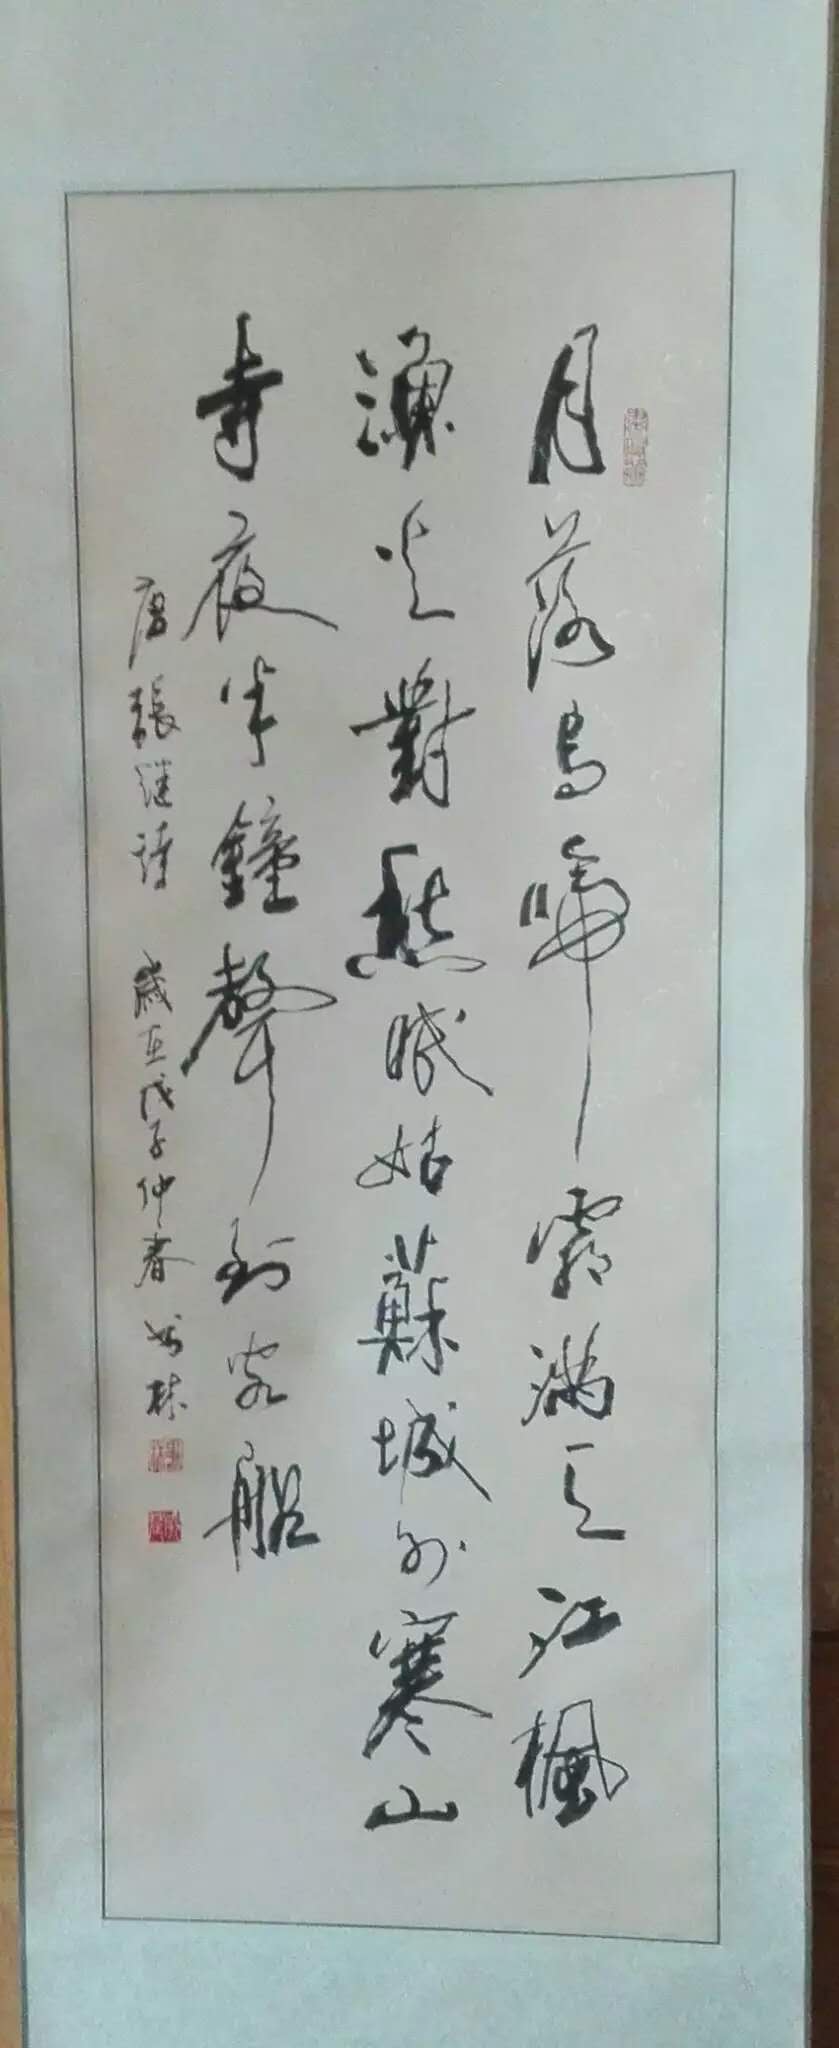 月落烏啼霜滿天江楓
漁火對愁眠姑蘇城外寒山
寺夜半鐘聲到客船
唐張继詩 歲在戊子仲春